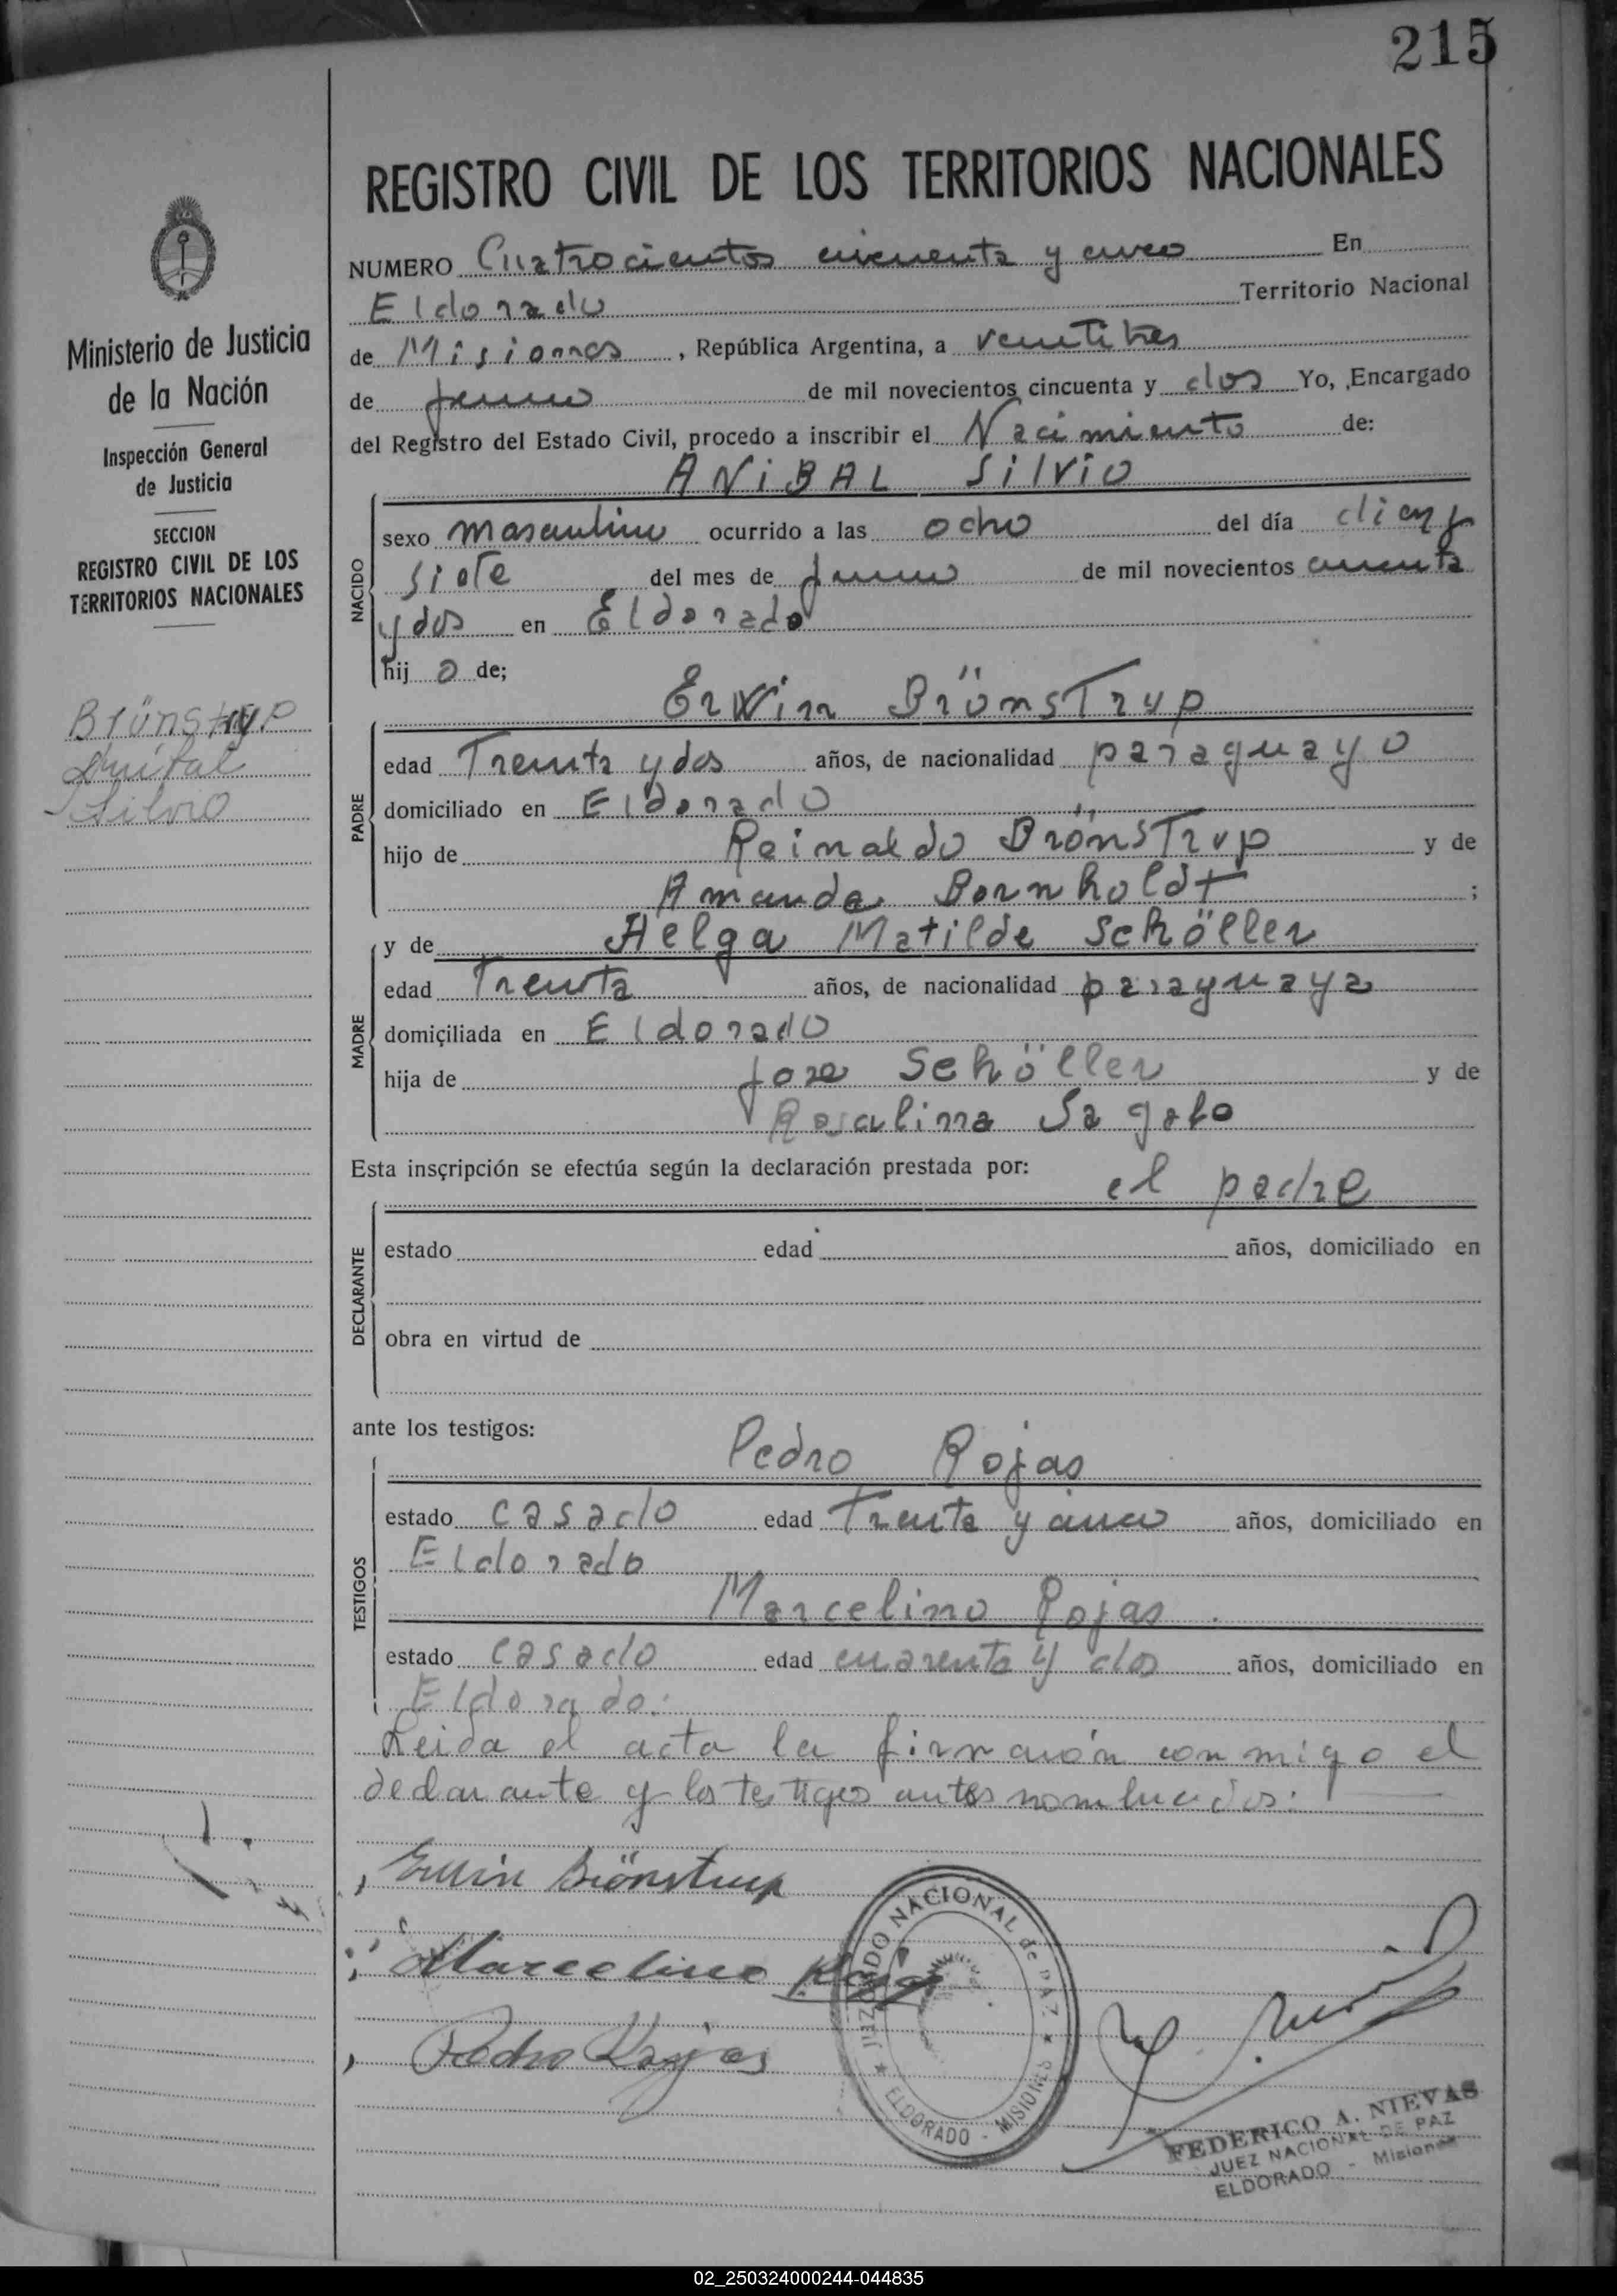 215
REGISTRO CIVIL DE LOS TERRITORIOS NACIONALES
Ministerio de Justicia
de la Nación
Inspección General
de Justicia
SECCION
REGISTRO CIVIL DE LOS
TERRITORIOS NACIONALES
Brönstrup
Anibal
Silvio
NUMERO Cuatrocientos cincuenta y cinco En
Eldorado Territorio Nacional
de Misiones, República Argentina, a veintitres
de junio de mil novecientos cincuenta y dos Yo, Encargado
del Registro del Estado Civil, procedo a inscribir el Nacimiento de:
ANiBAL SilviO
NACIDO
sexo masculino ocurrido a las ocho del día diez y
siete del mes de junio de mil novecientos cincuenta
y dos en Eldorado
hijo de;
Erwin Brönstrup
PADRE
edad Treinta y dos años, de nacionalidad paraguayo
domiciliado en Eldorado
hijo de Reinaldo Brönstrup y de
Amanda Bornholdt;
MADRE
y de Helga Matilde Schöller
edad Treinta años, de nacionalidad paraguaya
domiciliada en Eldorado
hija de Jose Schöller y de
Rosalina
Esta inscripción se efectúa según la declaración prestada por: el padre
DECLARANTE
estado edad años, domiciliado en
obra en virtud de
ante los testigos:
Pedro Rojas
TESTIGOS
estado casado edad Treinta y cinco años, domiciliado en
Eldorado
Marcelino Rojas.
estado casado edad cuarenta y dos años, domiciliado en
Eldorado.
Leida el acta la firmarón conmigo el
declarante y los testigos antes nombrados.
Erwin Brönstrup
Marcelino Rojas
Pedro Rojas
JUZGADO NACIONAL de PAZ
ELDORADO - MISIONES
FEDERICO A. NIEVAS
JUEZ NACIONAL DE PAZ
ELDORADO - Misiones
02_250324000244-044835